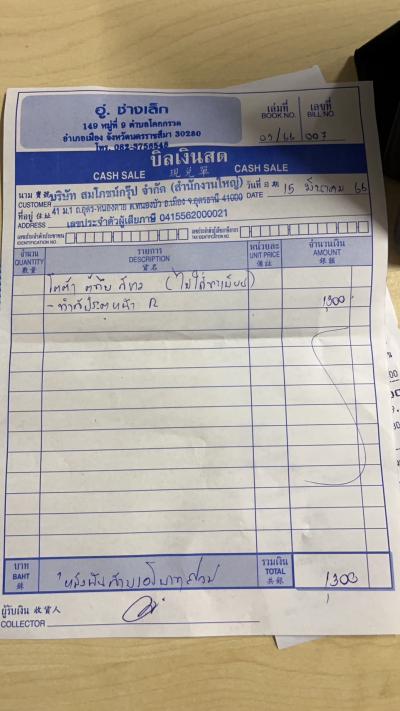 อู่. ช่างเล็ก
149 หมู่ที่ 9 ตำบลโคกกรวด
อำเภอเมือง จังหวัดนครราชสีมา 30280
โทร. 082-3756548
เล่มที่ เลขที่
BOOK NO. BILL NO.
09/66 007
บิลเงินสด
CASH SALE 現兌單 CASH SALE
นาม
CUSTOMER บริษัท สมโภชน์กรุ๊ป จำกัด (สำนักงานใหญ่) วันที่ 日期 15 มีนาคม 66
ที่อยู่ 住址 41 ม.1 ถ.อุดร-หนองคาย ต.หนองบัว อ.เมือง จ.อุดรธานี 41000
ADDRESS เลขประจำตัวผู้เสียภาษี 0415562000021
เลขประจำตัวประชาชน เลขประจำตัวผู้เสียภาษีอากร
IDENTIFICATION NO. TAX IDENTIFICATION NO.
จำนวน รายการ หน่วยละ จำนวนเงิน
QUANTITY DESCRIPTION UNIT PRICE AMOUNT
數量 貨名 備註 銀額
(ไม่ใส่ทะเบียน)
- ทำสีประตูหน้า R 1300
บาท รวมเงิน
BAHT หนึ่งพันสามร้อยบาทถ้วน TOTAL 1300
銖 共銀
ผู้รับเงิน 收貨人
COLLECTOR